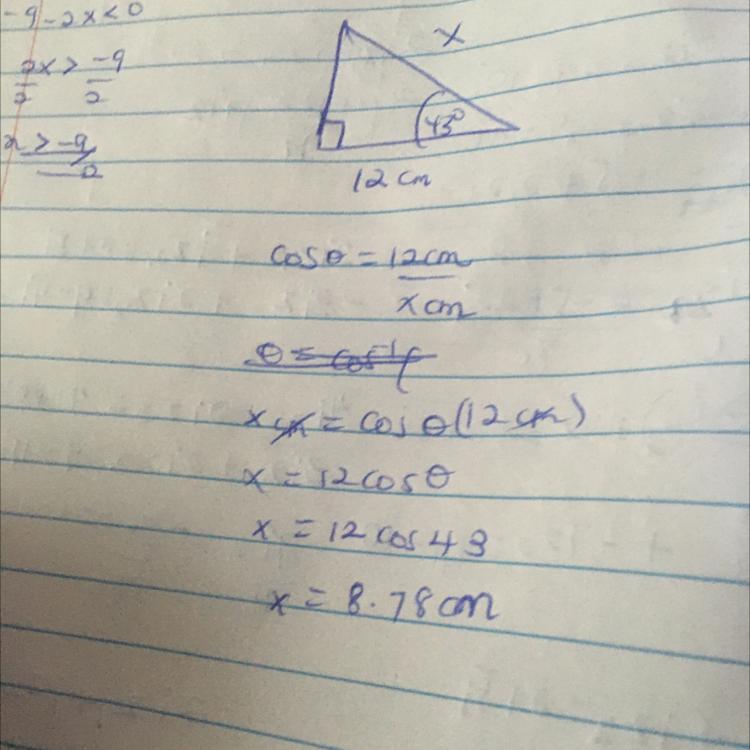 -9-2x<0
2x > -9
2 2
x > -9
2
x
43°
12 cm
cosθ = 12cm
x cm
x cm = cos θ(12 cm)
x = 12cosθ
x = 12 cos 43
x = 8.78cm